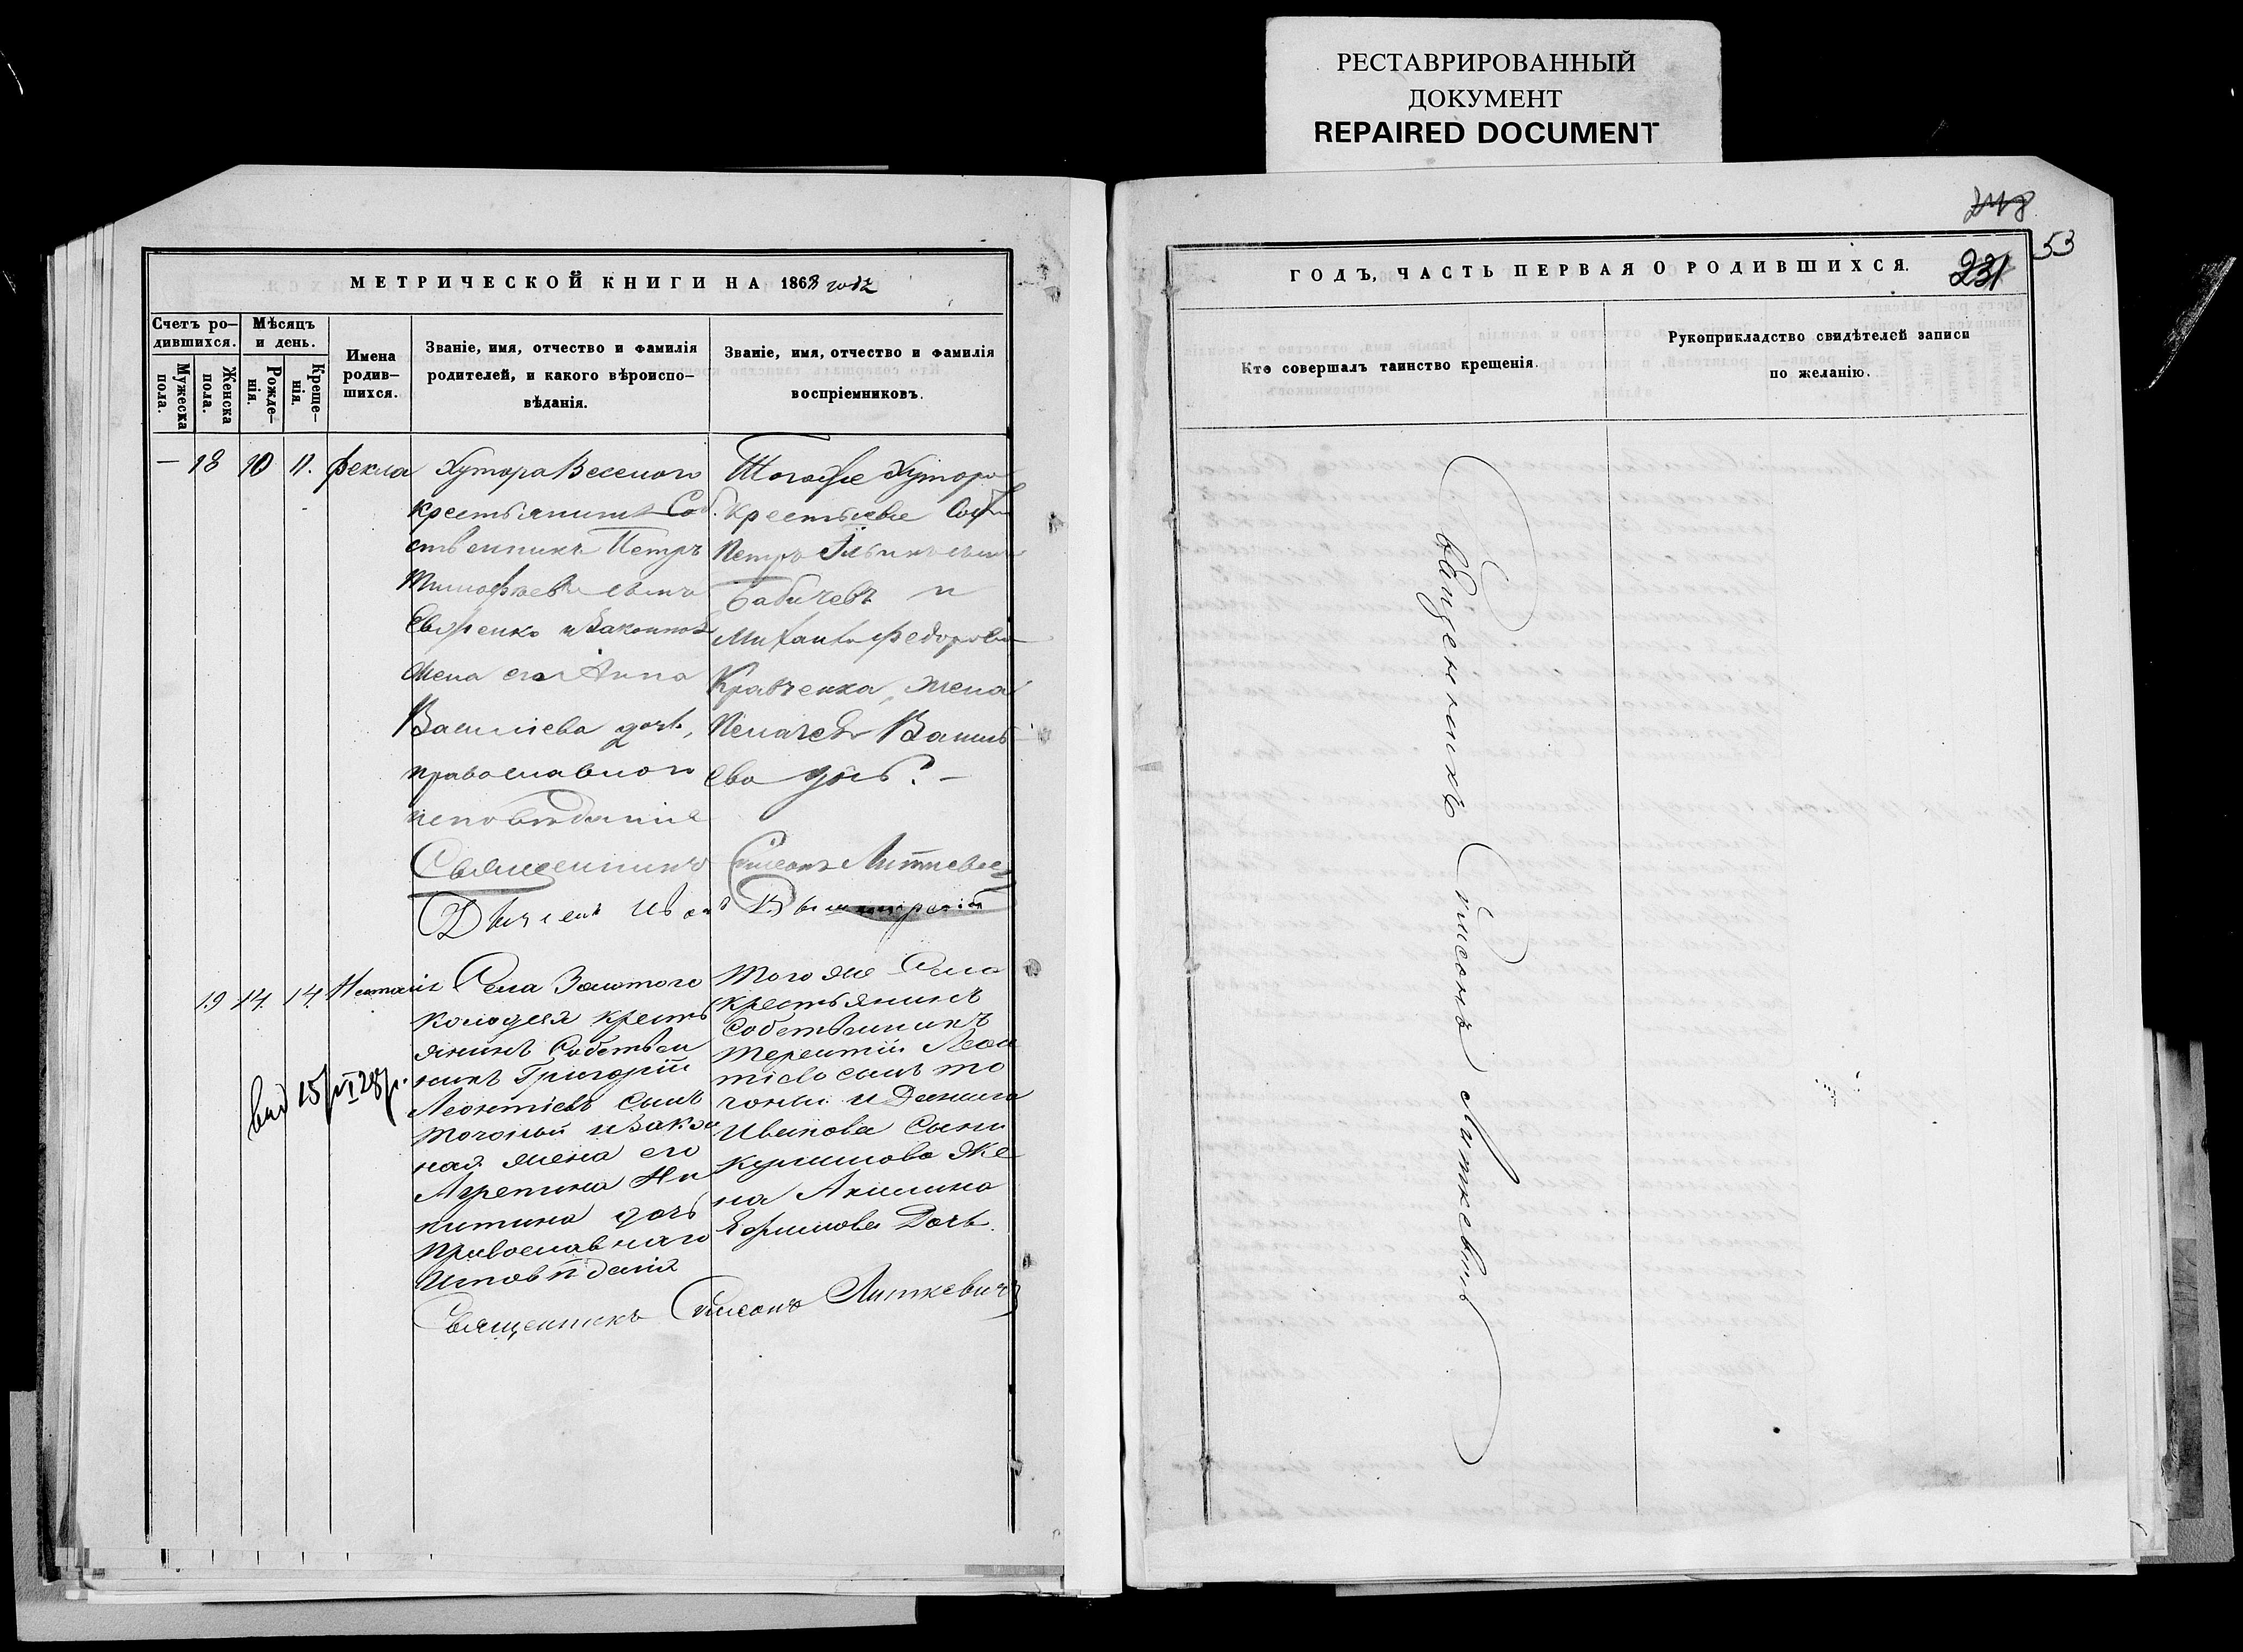 РЕСТАВРИРОВАННЫЙ
ДОКУМЕНТ
REPAIRED DOCUMENT
МЕТРИЧЕСКОЙ КНИГИ НА 1868 годъ
Счетъ ро-
дившихся.
Мужеска
пола.
Женска
пола.
Мѣсяцъ
и день.
Рожде-
нія.
Креще-
нія.
Имена
родив-
шихся.
Званіе, имя, отчество и фамилія
родителей, и какого вѣроиспо-
вѣданія.
Званіе, имя, отчество и фамилія
воспріемниковъ.
— 18 10 11. Фекла
Хутора Веселого
крестьянинъ Соб.
ственникъ Петръ
Тимофѣевъ сынъ
и Законная
жена его Анна
Василіева дочь,
православного
исповѣданія
Того же Хутора
Крестьяне
Петръ сынъ
Бабичевъ и
Федорова
Кравченка, жена
Василь
ева дочь. —
Священникъ Симеонъ Литкевичъ
19 14 14 Наталія
вид 15/VI 28 р.
Села Золотого
колодезя кресть
янинъ Собствен
никъ Григорій
Леонтіевъ сынъ
и Закон
ная жена его
Агрепина Ни
китина дочь
Православнаго
Исповѣданія
Того же Села
крестьянинъ
Собственникъ
Терентій Леон
тіевъ сынъ
и Данила
Иванова Сына
Же
на Акилина
Ефимова Дочь.
Священникъ Симеонъ Литкевичъ
248
53
231
ГОДЪ, ЧАСТЬ ПЕРВАЯ О РОДИВШИХСЯ.
Кто совершалъ таинство крещенія.
Рукоприкладство свидѣтелей записи
по желанію.
Священникъ Симеонъ Литкевичъ